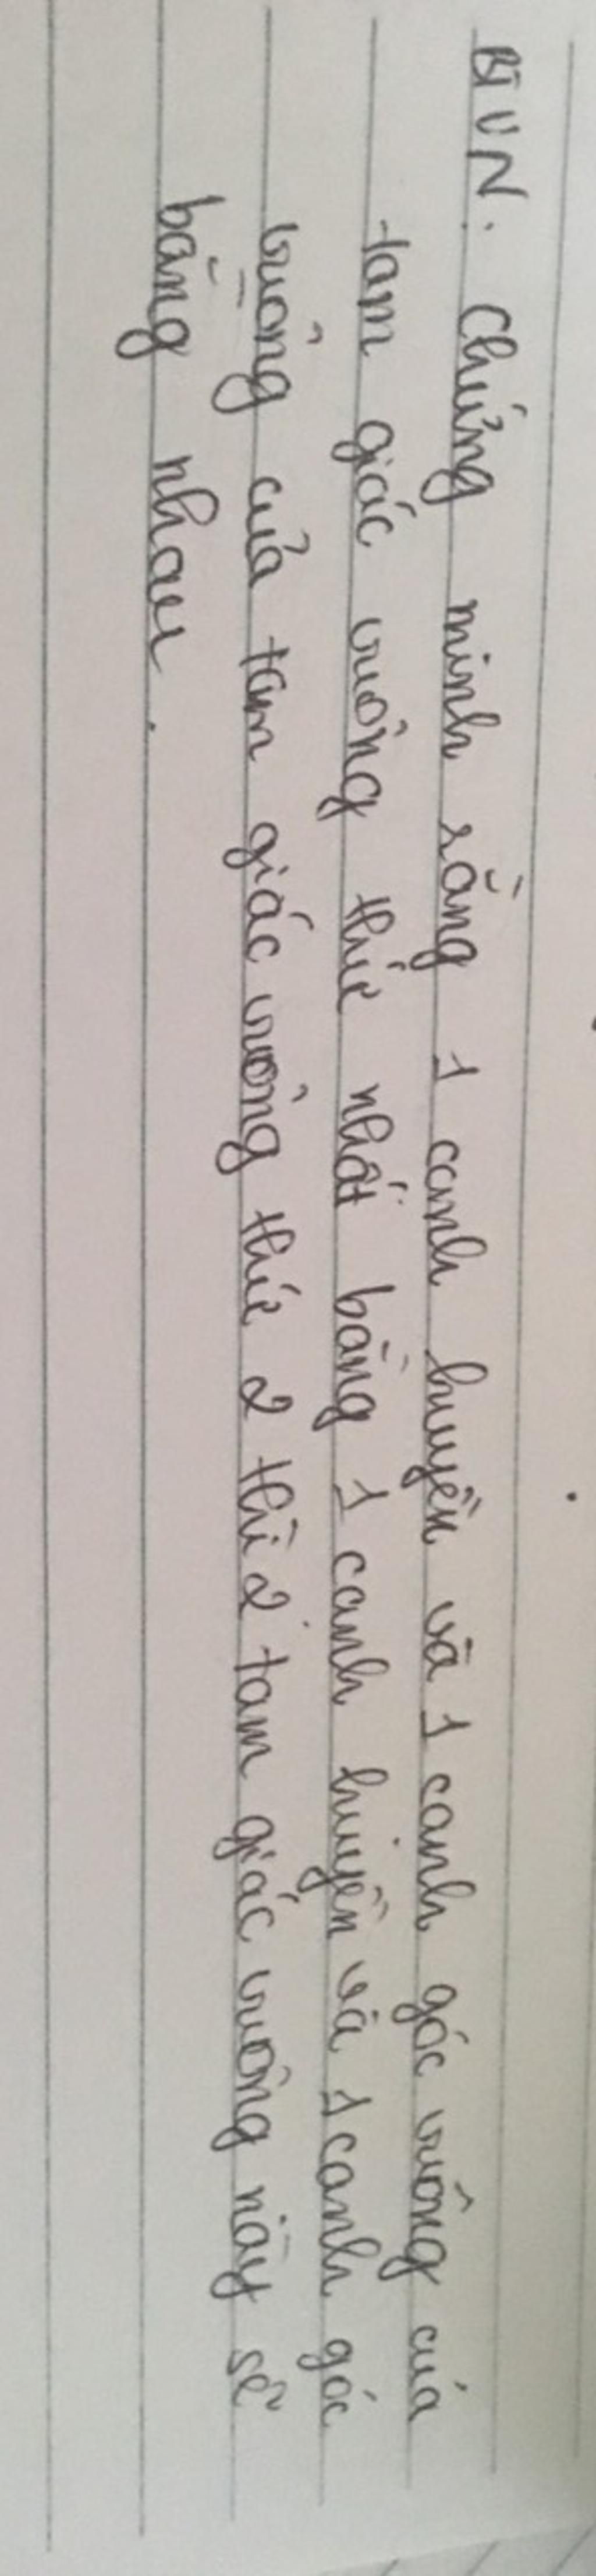 BTVN. Chứng minh rằng 1 cạnh huyền và 1 cạnh góc vuông của
tam giác vuông thứ nhất bằng 1 cạnh huyền và 1 cạnh góc
vuông của tam giác vuông thứ 2 thì 2 tam giác vuông này sẽ
bằng nhau.